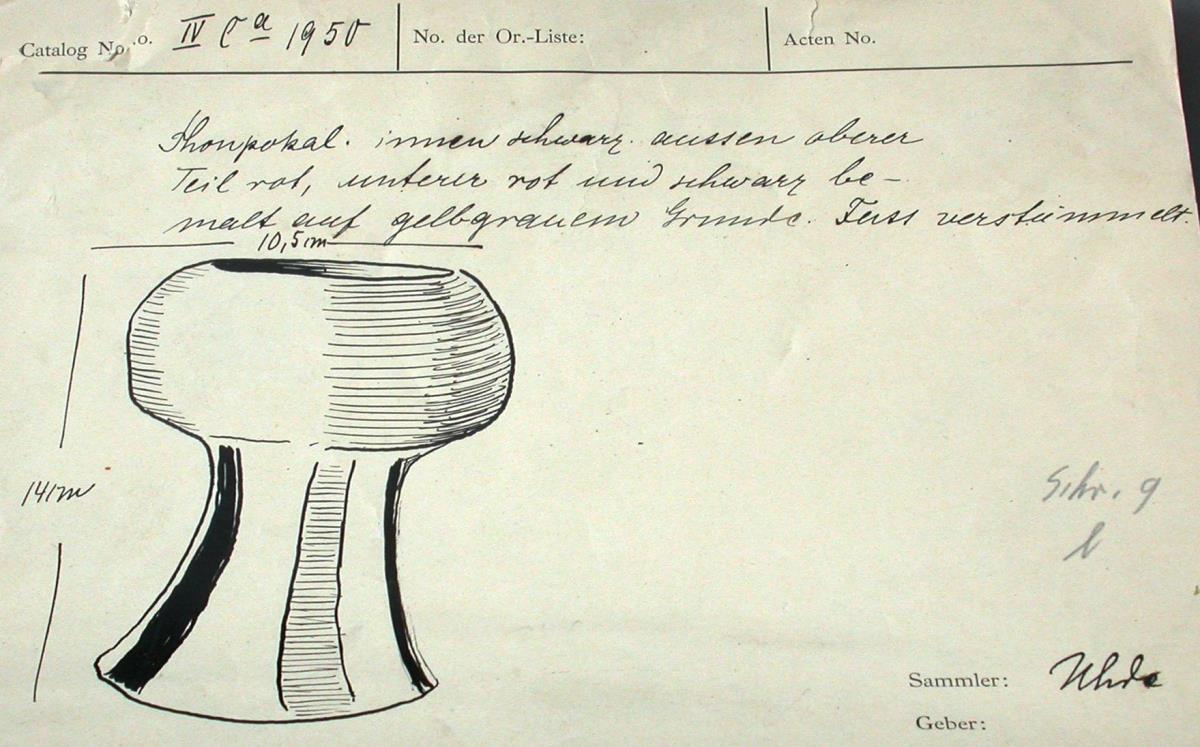 Catalog No. o. IV Ca 1950
No. der Or.-Liste:
Acten No.
Thonpokal. innen schwarz. aussen oberer
Teil rot, unterer rot und schwarz be-
malt auf gelbgrauem Grunde. Fuss verstümmelt.
10,5cm
14cm
Schr. 9
b
Sammler: Uhde
Geber: